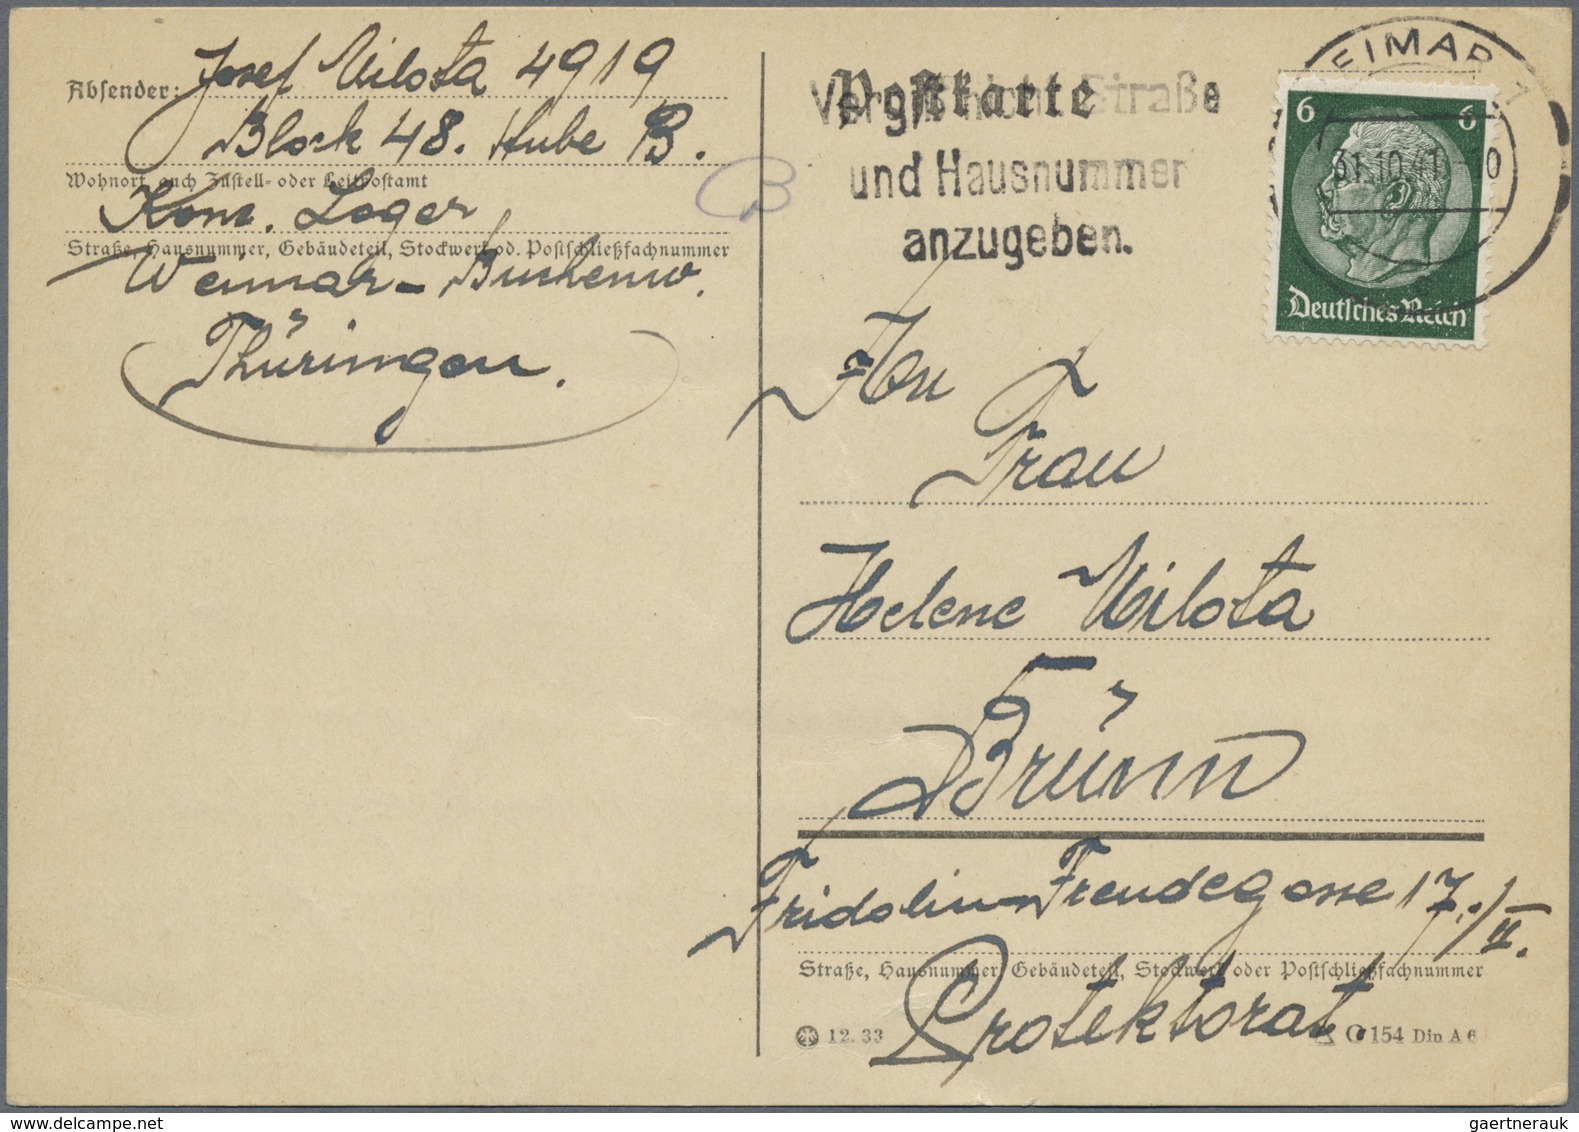 Absender: Josef Milota 4919
Block 48. Stube B.
Wohnort, auch Zustell- oder Leitpostamt
Kon. Lager
Straße, Hausnummer, Gebäudeteil, Stockwerk od. Postschließfachnummer
Weimar - Buchenw.
Thüringen.
B
Postkarte
Vergiß nicht Straße
und Hausnummer
anzugeben.
WEIMAR 1
31.10.41 10
6 6
Deutsches Reich
An
Frau
Helene Milota
Brünn
Fridolin-Freudegasse 17./II.
Straße, Hausnummer, Gebäudeteil, Stockwerk oder Postschließfachnummer
Protektorat.
12. 33
C 154 Din A 6
gaertnerauk @ delcampe.net